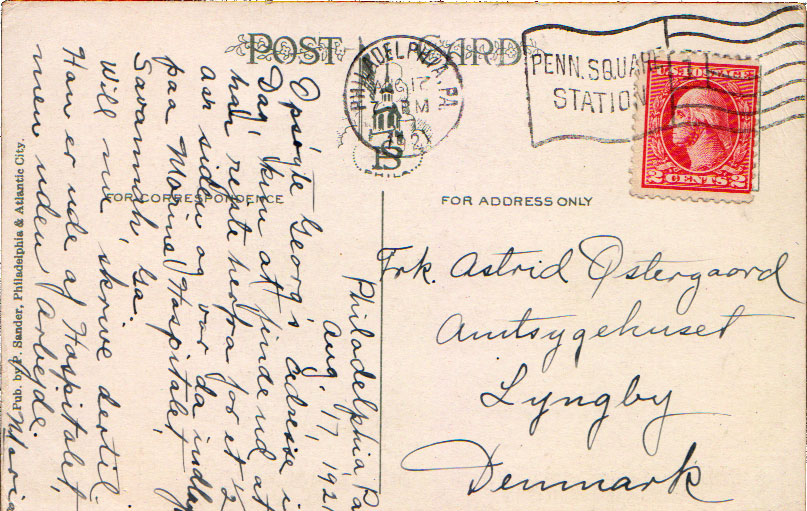 POST CARD
PHILADELPHIA, PA.
AUG 17
PM
1921
PENN. SQUARE
STATION
POSTAGE
2 CENTS 2
FOR CORRESPONDENCE
FOR ADDRESS ONLY
Pub. by P. Sander, Philadelphia & Atlantic City.
Philadelphia Pa
Aug. 17, 1921
Opsøgte Georg's Adresse i
Dag, kun at finde ud at
han rejste herfra for et ½
Aar siden og var da indlagt
paa Marine Hospitalet
Savannah, Ga.
Will nu skrive dertil.
Han er ude af Hospitalet,
men uden Arbejde.
Marie
Frk. Astrid Østergaard
Amtsygehuset
Lyngby
Denmark